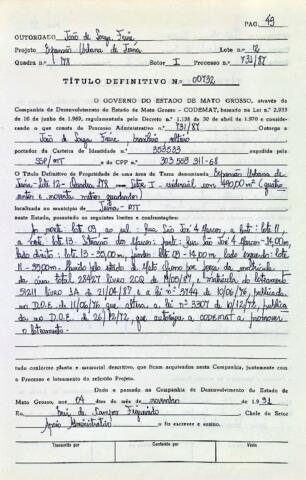 PAG. 49
OUTORGADO João de Souza Freire
Projeto Expansão Urbana de Juína Lote n.º 12
Quadra n.º 178 Setor I Processo n.º 731/87
TÍTULO DEFINITIVO N.º 00732
O GOVERNO DO ESTADO DE MATO GROSSO, através da
Companhia de Desenvolvimento do Estado de Mato Grosso - CODEMAT, baseado na Lei n.º 2.933
de 16 de junho de 1.969, regulamentada pelo Decreto n.º 1.138 de 30 de abril de 1.970 e considerando
o que consta do Processo Administrativo n.º 731/87 Outorga a
João de Souza Freire, brasileiro, solteiro
portador da Carteira de Identidade n.º 353533 expedida pela
SSP/MT e do CPF n.º 303 503 311-68
O Título Definitivo de Propriedade de uma área de Terra denominada Expansão Urbana de
Juína - lote 12 - Quadra 178 - Setor I - residencial com 490,00 m² (quatro
centos e noventa metros quadrados)
localizada no município de Juína - MT
neste Estado, possuindo os seguintes limites e confrontações:
Ao norte: lote 09 ao sul: Rua São José 4 Marcos, a leste: lote 11,
a oeste: lote 13. frente: Rua São José 4 Marcos - 14,00m,
lado direito: lote 13 - 35,00m, fundos: lote 09 - 14,00m, lado esquerdo: lote
11 - 35,00m. Havido pelo estado de Mato Grosso por força da matrícula
da área total 28427 livro 2CR 19/05/87, e matrícula do loteamento
51211 livro 3A de 21/04/87 e a lei n.º 3744 de 10/06/76, publicada
no D.O.E. de 11/06/76 que altera a lei n.º 3307 de 18/12/72, publica
da no D.O.E. de 26/12/72, que autoriza a CODEMAT a promover
o loteamento.
tudo conforme planta e memorial descritivo, que ficam arquivados nesta Companhia, juntamente com
o Processo e loteamento do referido Projeto.
Dado e passado na Companhia de Desenvolvimento do Estado de
Mato Grosso, aos 04 dias do mês de novembro de 1.991
Eu, de Campos Figueiredo Chefe do Setor
Apoio Administrativo o fiz escrever e assino.
Transcrito por Conferido por Visto